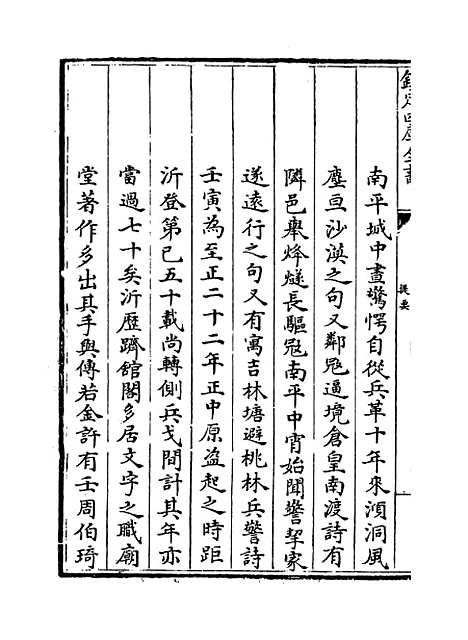 欽定四庫全書
提要
南平城中晝驚愕自從兵革十年來澒洞風
塵亘沙漠之句又鄰冦逼境倉皇南渡詩有
隣邑舉烽燧長驅冦南平中宵始聞警挈家
遂遠行之句又有寓吉林塘避桃林兵警詩
壬寅為至正二十二年正中原盗起之時距
沂登第已五十載尚轉側兵戈間計其年亦
當過七十矣沂歴躋館閣多居文字之職廟
堂著作多出其手與傅若金許有壬周伯琦